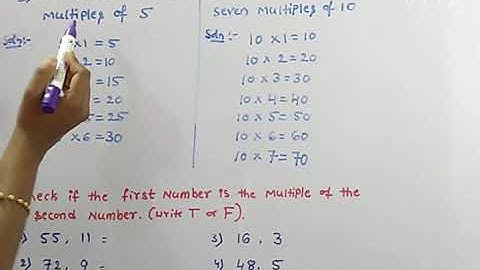 multiples of 5
Soln:-
×1 = 5
= 10
= 15
= 20
= 25
× 6 = 30
seven multiples of 10
Soln:-
10 × 1 = 10
10 × 2 = 20
10 × 3 = 30
10 × 4 = 40
10 × 5 = 50
10 × 6 = 60
10 × 7 = 70
check if the first Number is the multiple of the
second Number. (write T or F).
1) 55, 11 =
2) 72, 9 =
3) 16, 3
4) 48, 5